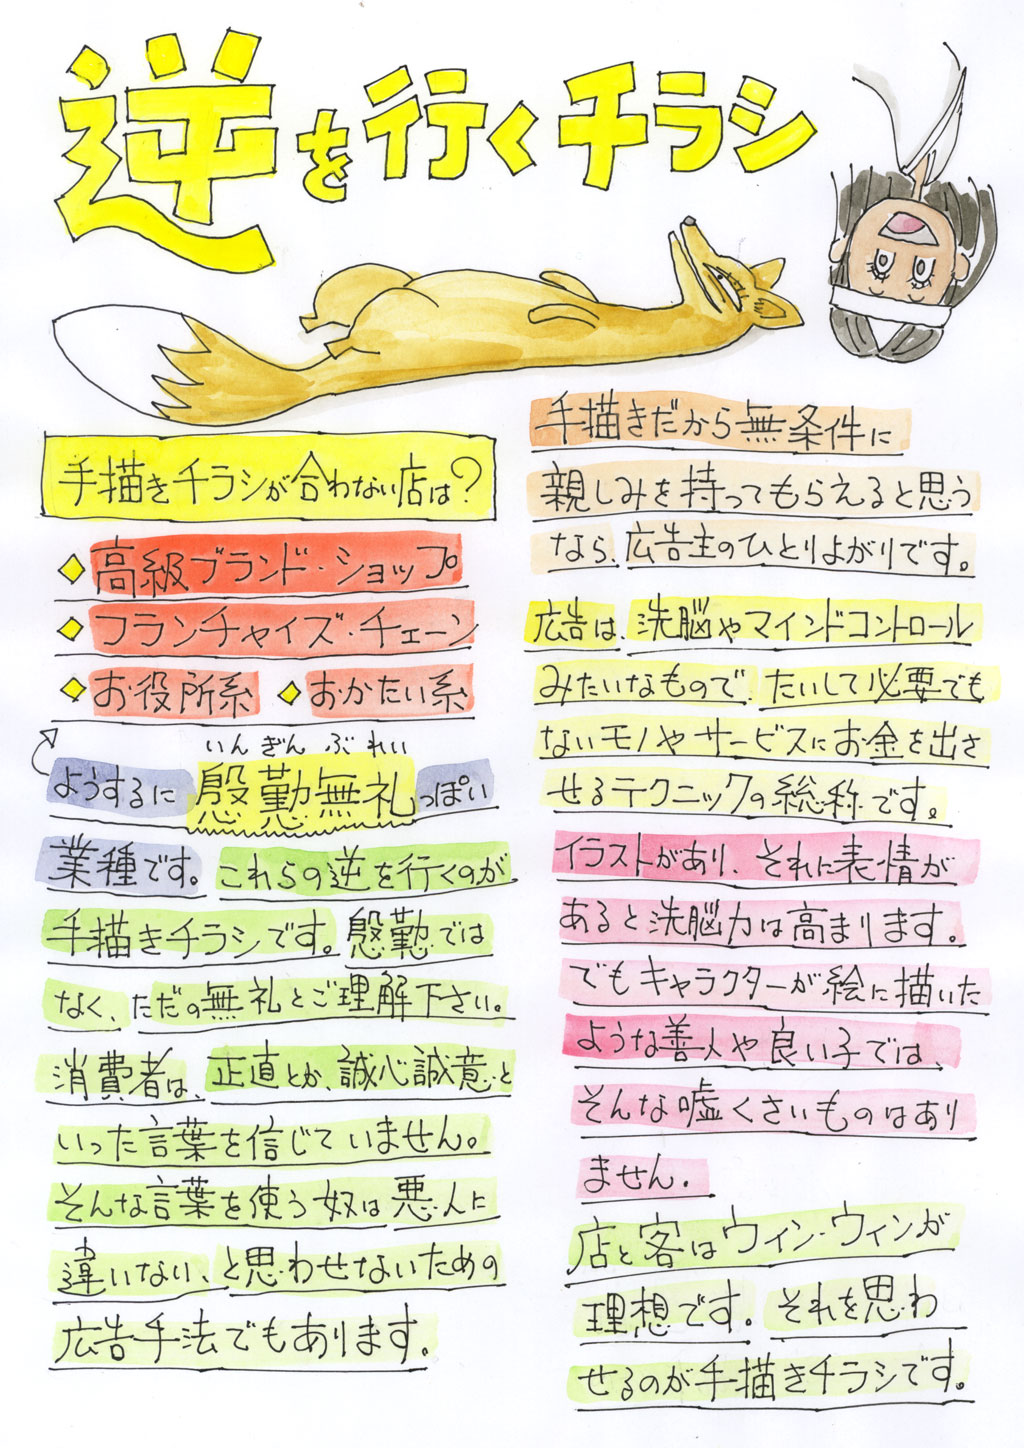 逆を行くチラシ
手描きチラシが合わない店は?
◆高級ブランド・ショップ
◆フランチャイズ・チェーン
◆お役所系 ◆おかたい系
いんぎんぶれい
ようするに慇懃無礼っぽい
業種です。これらの逆を行くのが
手描きチラシです。慇懃では
なく、ただの無礼とご理解下さい。
消費者は、正直とか、誠心誠意と
いった言葉を信じていません。
そんな言葉を使う奴は悪人に
違いない、と思わせないための
広告手法でもあります。
手描きだから無条件に
親しみを持ってもらえると思う
なら、広告主のひとりよがりです。
広告は、洗脳やマインドコントロール
みたいなもので、たいして必要でも
ないモノやサービスにお金を出さ
せるテクニックの総称です。
イラストがあり、それに表情が
あると洗脳力は高まります。
でもキャラクターが絵に描いた
ような善人や良い子では、
そんな嘘くさいものはあり
ません。
店と客はウィン・ウィンが
理想です。それを思わ
せるのが手描きチラシです。